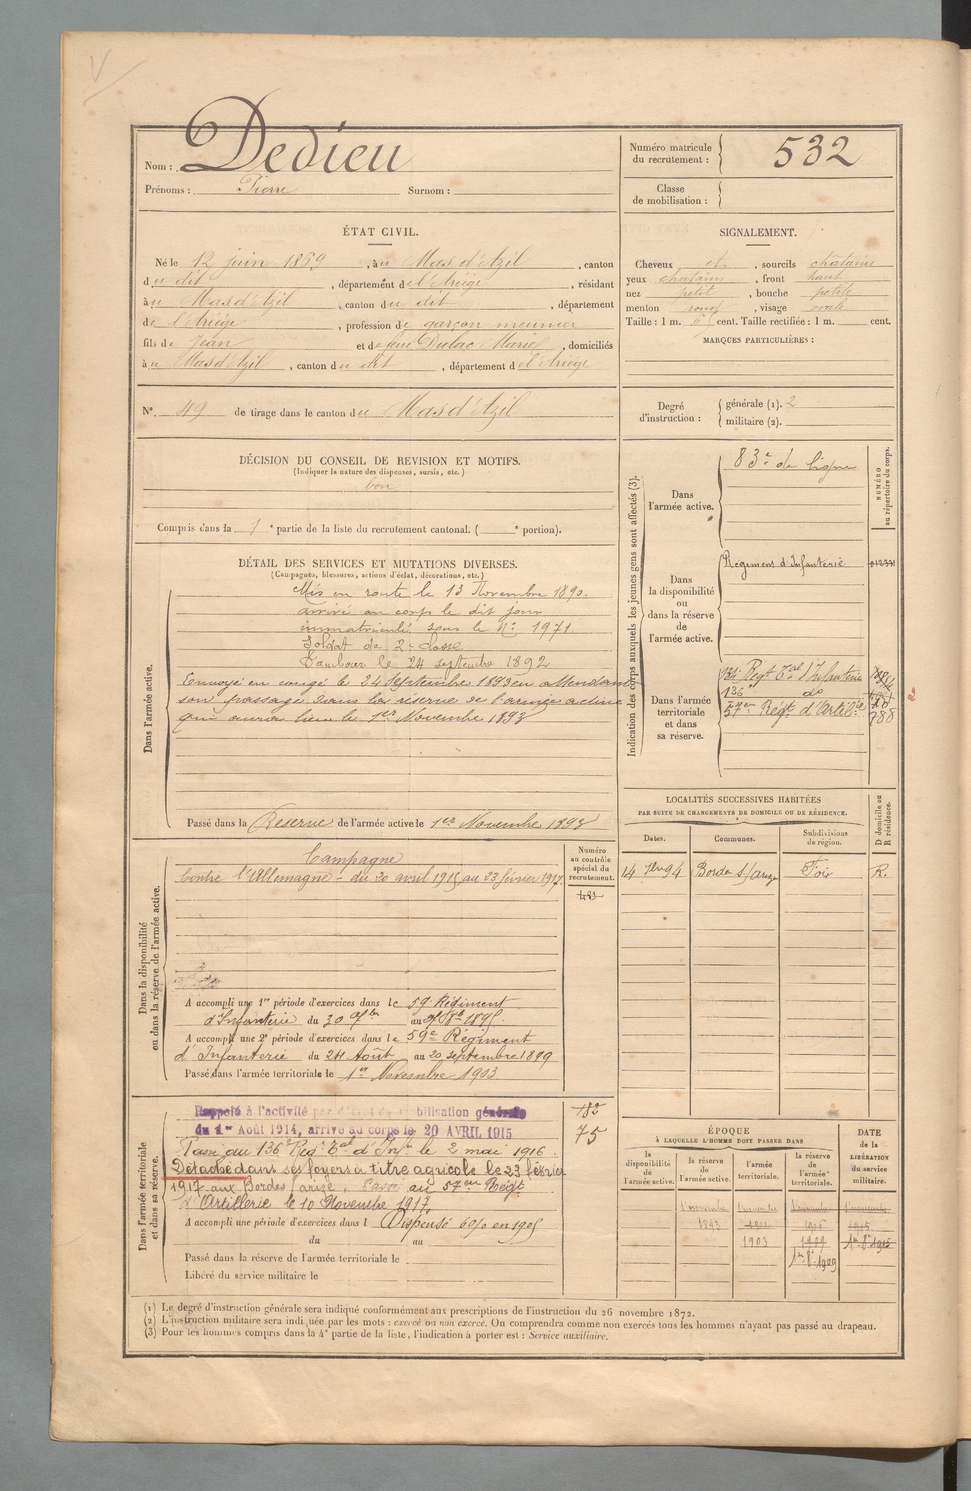 Nom : Dedieu
Prénoms : Pierre Surnom :
Numéro matricule du recrutement : 532
Classe de mobilisation :
ÉTAT CIVIL.
Né le 12 juin 1869, à u Mas d'Azil, canton
d u dit, département de l'Ariège, résidant
à u Mas d'Azil, canton d u dit, département
de l'Ariège, profession de garçon meunier
fils de Jean et de feue Dulac Marie, domiciliés
à u Mas d'Azil, canton d u dit, département de l'Ariège
SIGNALEMENT.
Cheveux et, sourcils chatains
yeux chatains, front haut
nez petit, bouche petite
menton rond, visage ovale
Taille : 1 m. cent. Taille rectifiée : 1 m. cent.
MARQUES PARTICULIÈRES :
N° 49 de tirage dans le canton du Mas d'Azil
Degré d'instruction : générale (1). 2
militaire (2).
DÉCISION DU CONSEIL DE REVISION ET MOTIFS.
(Indiquer la nature des dispenses, sursis, etc.)
bon
Compris dans la 1e partie de la liste du recrutement cantonal. ( e portion).
Indication des corps auxquels les jeunes gens sont affectés (3).
NUMÉRO au répertoire du corps.
Dans l'armée active.
83e de ligne
Dans la disponibilité ou dans la réserve de l'armée active.
Régiment d'Infanterie
Dans l'armée territoriale et dans sa réserve.
Régt Tal d'Infanterie
136e do
57e Régt d'Artil.ie 788
DÉTAIL DES SERVICES ET MUTATIONS DIVERSES.
(Campagnes, blessures, actions d'éclat, décorations, etc.)
Dans l'armée active.
Mis en route le 13 Novembre 1890.
arrivé au corps le dit jour
immatriculé sous le N° 1971
Soldat de 2e classe
Tambour le 24 septembre 1892
Envoyé en congé le 24 Septembre 1893 en attendant
son passage dans la réserve de l'armée active
qui aura lieu le 1er Novembre 1893
Passé dans la Réserve de l'armée active le 1er Novembre 1893
LOCALITÉS SUCCESSIVES HABITÉES
PAR SUITE DE CHANGEMENTS DE DOMICILE OU DE RÉSIDENCE.
Dates. Communes. Subdivisions de région. D domicile ou R résidence.
94 Bordes s/ arize Foix R.
Dans la disponibilité ou dans la réserve de l'armée active.
Numéro au contrôle spécial du recrutement.
Campagne
Contre l'Allemagne - du 20 avril 1915 au 23 février 1917.
A accompli une 1re période d'exercices dans le 59e Régiment
d'Infanterie du 30 au 1895.
A accompli une 2e période d'exercices dans le 59e Régiment
d'Infanterie du 24 Août au 20 septembre 1899
Passé dans l'armée territoriale le 1er Novembre 1903
Dans l'armée territoriale et dans sa réserve.
182
75
Rappelé à l'activité par décret de mobilisation générale
du 1er Août 1914, arrivé au corps le 20 AVRIL 1915
Passé au 136e Reg. Tal d'Inf. le 2 mai 1916
Détaché dans ses foyers à titre agricole le 23 février
1917 aux Bordes s/arize. Passé au 57eme Régt
d'Artillerie le 10 Novembre 1917.
A accompli une période d'exercices dans l Dispensé 60/0 en 1905
du au
Passé dans la réserve de l'armée territoriale le
Libéré du service militaire le
ÉPOQUE
À LAQUELLE L'HOMME DOIT PASSER DANS
la disponibilité de l'armée active.
la réserve de l'armée active.
l'armée territoriale.
la réserve de l'armée territoriale.
DATE de la LIBÉRATION du service militaire.
1 novembre 1 novembre 1 novembre 1 novembre
1893
1903 1909
1929
(1) Le degré d'instruction générale sera indiqué conformément aux prescriptions de l'instruction du 26 novembre 1872.
(2) L'instruction militaire sera indiquée par les mots : exercé ou non exercé. On comprendra comme non exercés tous les hommes n'ayant pas passé au drapeau.
(3) Pour les hommes compris dans la 4e partie de la liste, l'indication à porter est : Service auxiliaire.